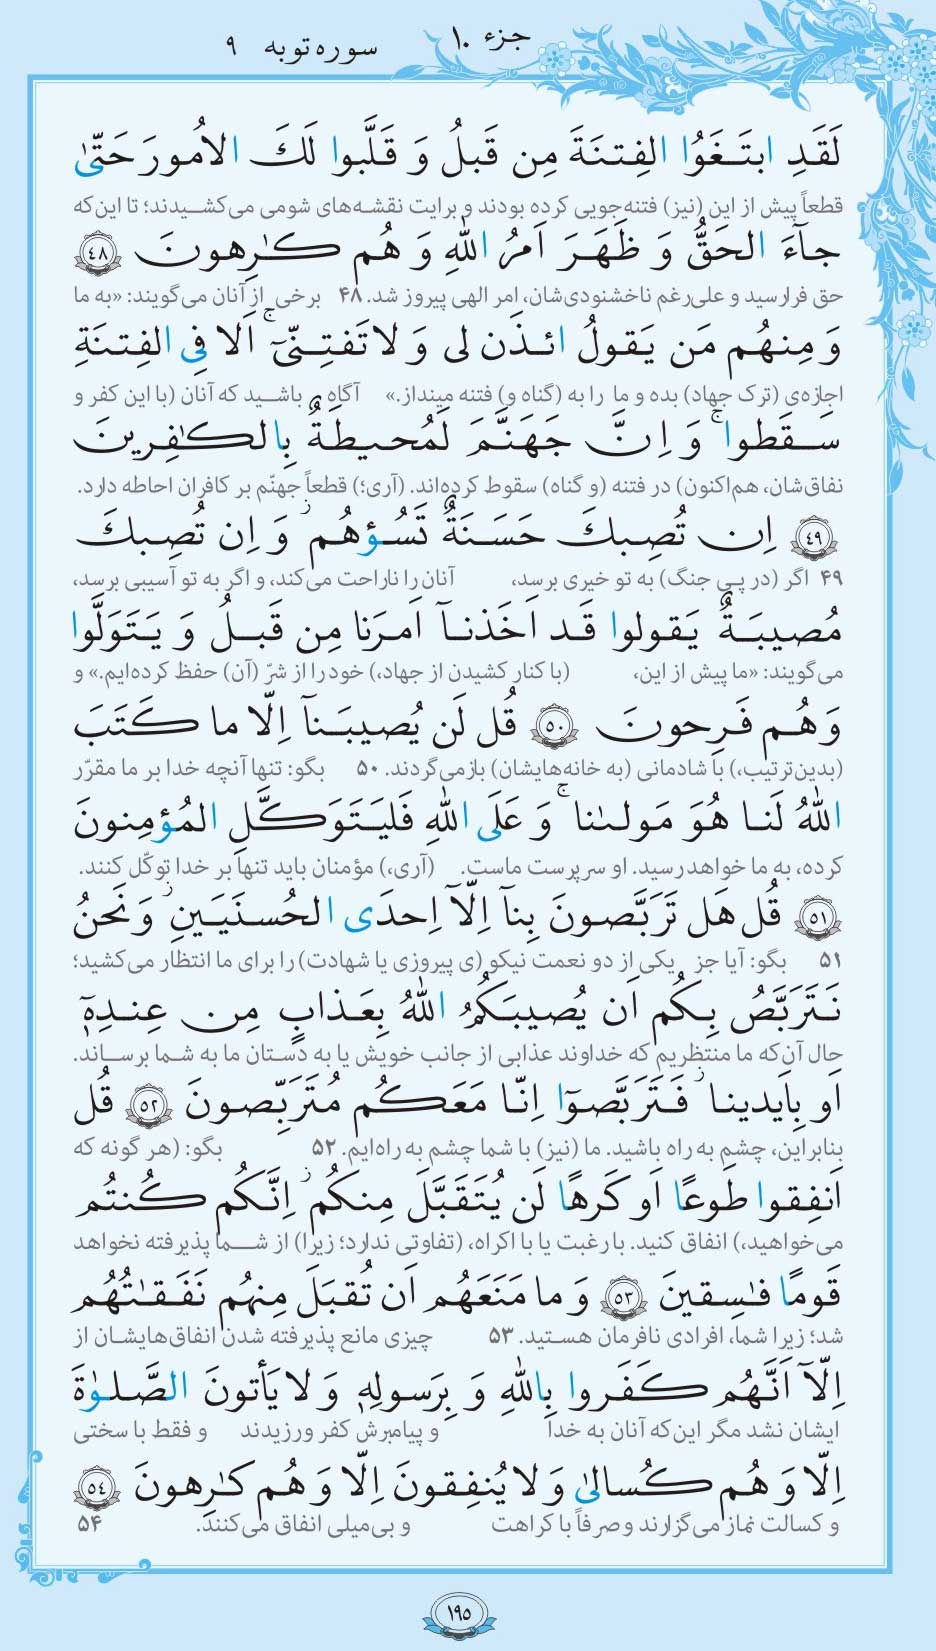 جزء ۱۰
سوره توبه ۹
لَقَدِ ابتَغَوُا الفِتنَةَ مِن قَبلُ وَ قَلَّبوا لَكَ الاُمورَ حَتّىٰ
قطعاً پیش از این (نیز) فتنه‌جویی کرده بودند و برایت نقشه‌های شومی می‌کشیدند؛ تا این‌که
جآءَ الحَقُّ وَ ظَهَرَ اَمرُ اللّٰهِ وَ هُم كـٰرِهونَ ﴿٤٨﴾
حق فرارسید و علی‌رغم ناخشنودی‌شان، امر الهی پیروز شد. ۴۸ برخی از آنان می‌گویند: «به ما
وَ مِنهُم مَن يَقولُ ائذَن لى وَ لا تَفتِنّىٓ ۚ اَلا فِى الفِتنَةِ
اجازه‌ی (ترک جهاد) بده و ما را به (گناه و) فتنه مینداز.» آگاه باشید که آنان (با این کفر و
سَقَطوا ۗ وَ اِنَّ جَهَنَّمَ لَمُحيطَةٌ بِالكـٰفِرينَ
نفاق‌شان، هم‌اکنون) در فتنه (و گناه) سقوط کرده‌اند. (آری؛) قطعاً جهنّم بر کافران احاطه دارد.
﴿٤٩﴾ اِن تُصِبكَ حَسَنَةٌ تَسُؤهُم ۖ وَ اِن تُصِبكَ
۴۹ اگر (در پی جنگ) به تو خیری برسد، آنان را ناراحت می‌کند، و اگر به تو آسیبی برسد،
مُصيبَةٌ يَقولوا قَد اَخَذنآ اَمرَنا مِن قَبلُ وَ يَتَوَلَّوا
می‌گویند: «ما پیش از این، (با کنار کشیدن از جهاد،) خود را از شرّ (آن) حفظ کرده‌ایم.» و
وَ هُم فَرِحونَ ﴿٥٠﴾ قُل لَن يُصيبَنآ اِلّا ما كَتَبَ
(بدین‌ترتیب،) با شادمانی (به خانه‌هایشان) بازمی‌گردند. ۵۰ بگو: تنها آنچه خدا بر ما مقرّر
اللّٰهُ لَنا هُوَ مَولىٰنا ۚ وَ عَلَى اللّٰهِ فَليَتَوَكَّلِ المُؤمِنونَ
کرده، به ما خواهد رسید. او سرپرست ماست. (آری،) مؤمنان باید تنها بر خدا توکّل کنند.
﴿٥١﴾ قُل هَل تَرَبَّصونَ بِنآ اِلّآ اِحدَى الحُسنَيَينِ ۖ وَ نَحنُ
۵۱ بگو: آیا جز یکی از دو نعمت نیکو (ی پیروزی یا شهادت) را برای ما انتظار می‌کشید؛
نَتَرَبَّصُ بِكُم اَن يُصيبَكُمُ اللّٰهُ بِعَذابٍ مِن عِندِهٖٓ
حال آن‌که ما منتظریم که خداوند عذابی از جانب خویش یا به دستان ما به شما برساند.
اَو بِاَيدينا ۖ فَتَرَبَّصوٓا اِنّا مَعَكُم مُتَرَبِّصونَ ﴿٥٢﴾ قُل
بنابراین، چشم به راه باشید. ما (نیز) با شما چشم به راه‌ایم. ۵۲ بگو: (هر گونه که
اَنفِقوا طَوعًا اَو كَرهًا لَن يُتَقَبَّلَ مِنكُم ۖ اِنَّكُم كُنتُم
می‌خواهید،) انفاق کنید. با رغبت یا با اکراه، (تفاوتی ندارد؛ زیرا) از شما پذیرفته نخواهد
قَومًا فـٰسِقينَ ﴿٥٣﴾ وَ ما مَنَعَهُم اَن تُقبَلَ مِنهُم نَفَقـٰتُهُم
شد؛ زیرا شما، افرادی نافرمان هستید. ۵۳ چیزی مانع پذیرفته شدن انفاق‌هایشان از
اِلّآ اَنَّهُم كَفَروا بِاللّٰهِ وَ بِرَسولِهٖ وَ لا يَأتونَ الصَّلوٰةَ
ایشان نشد مگر این‌که آنان به خدا و پیامبرش کفر ورزیدند و فقط با سختی
اِلّا وَ هُم كُسالىٰ وَ لا يُنفِقونَ اِلّا وَ هُم كـٰرِهونَ ﴿٥٤﴾
و کسالت نماز می‌گزارند و صرفاً با کراهت و بی‌میلی انفاق می‌کنند. ۵۴
۱۹۵